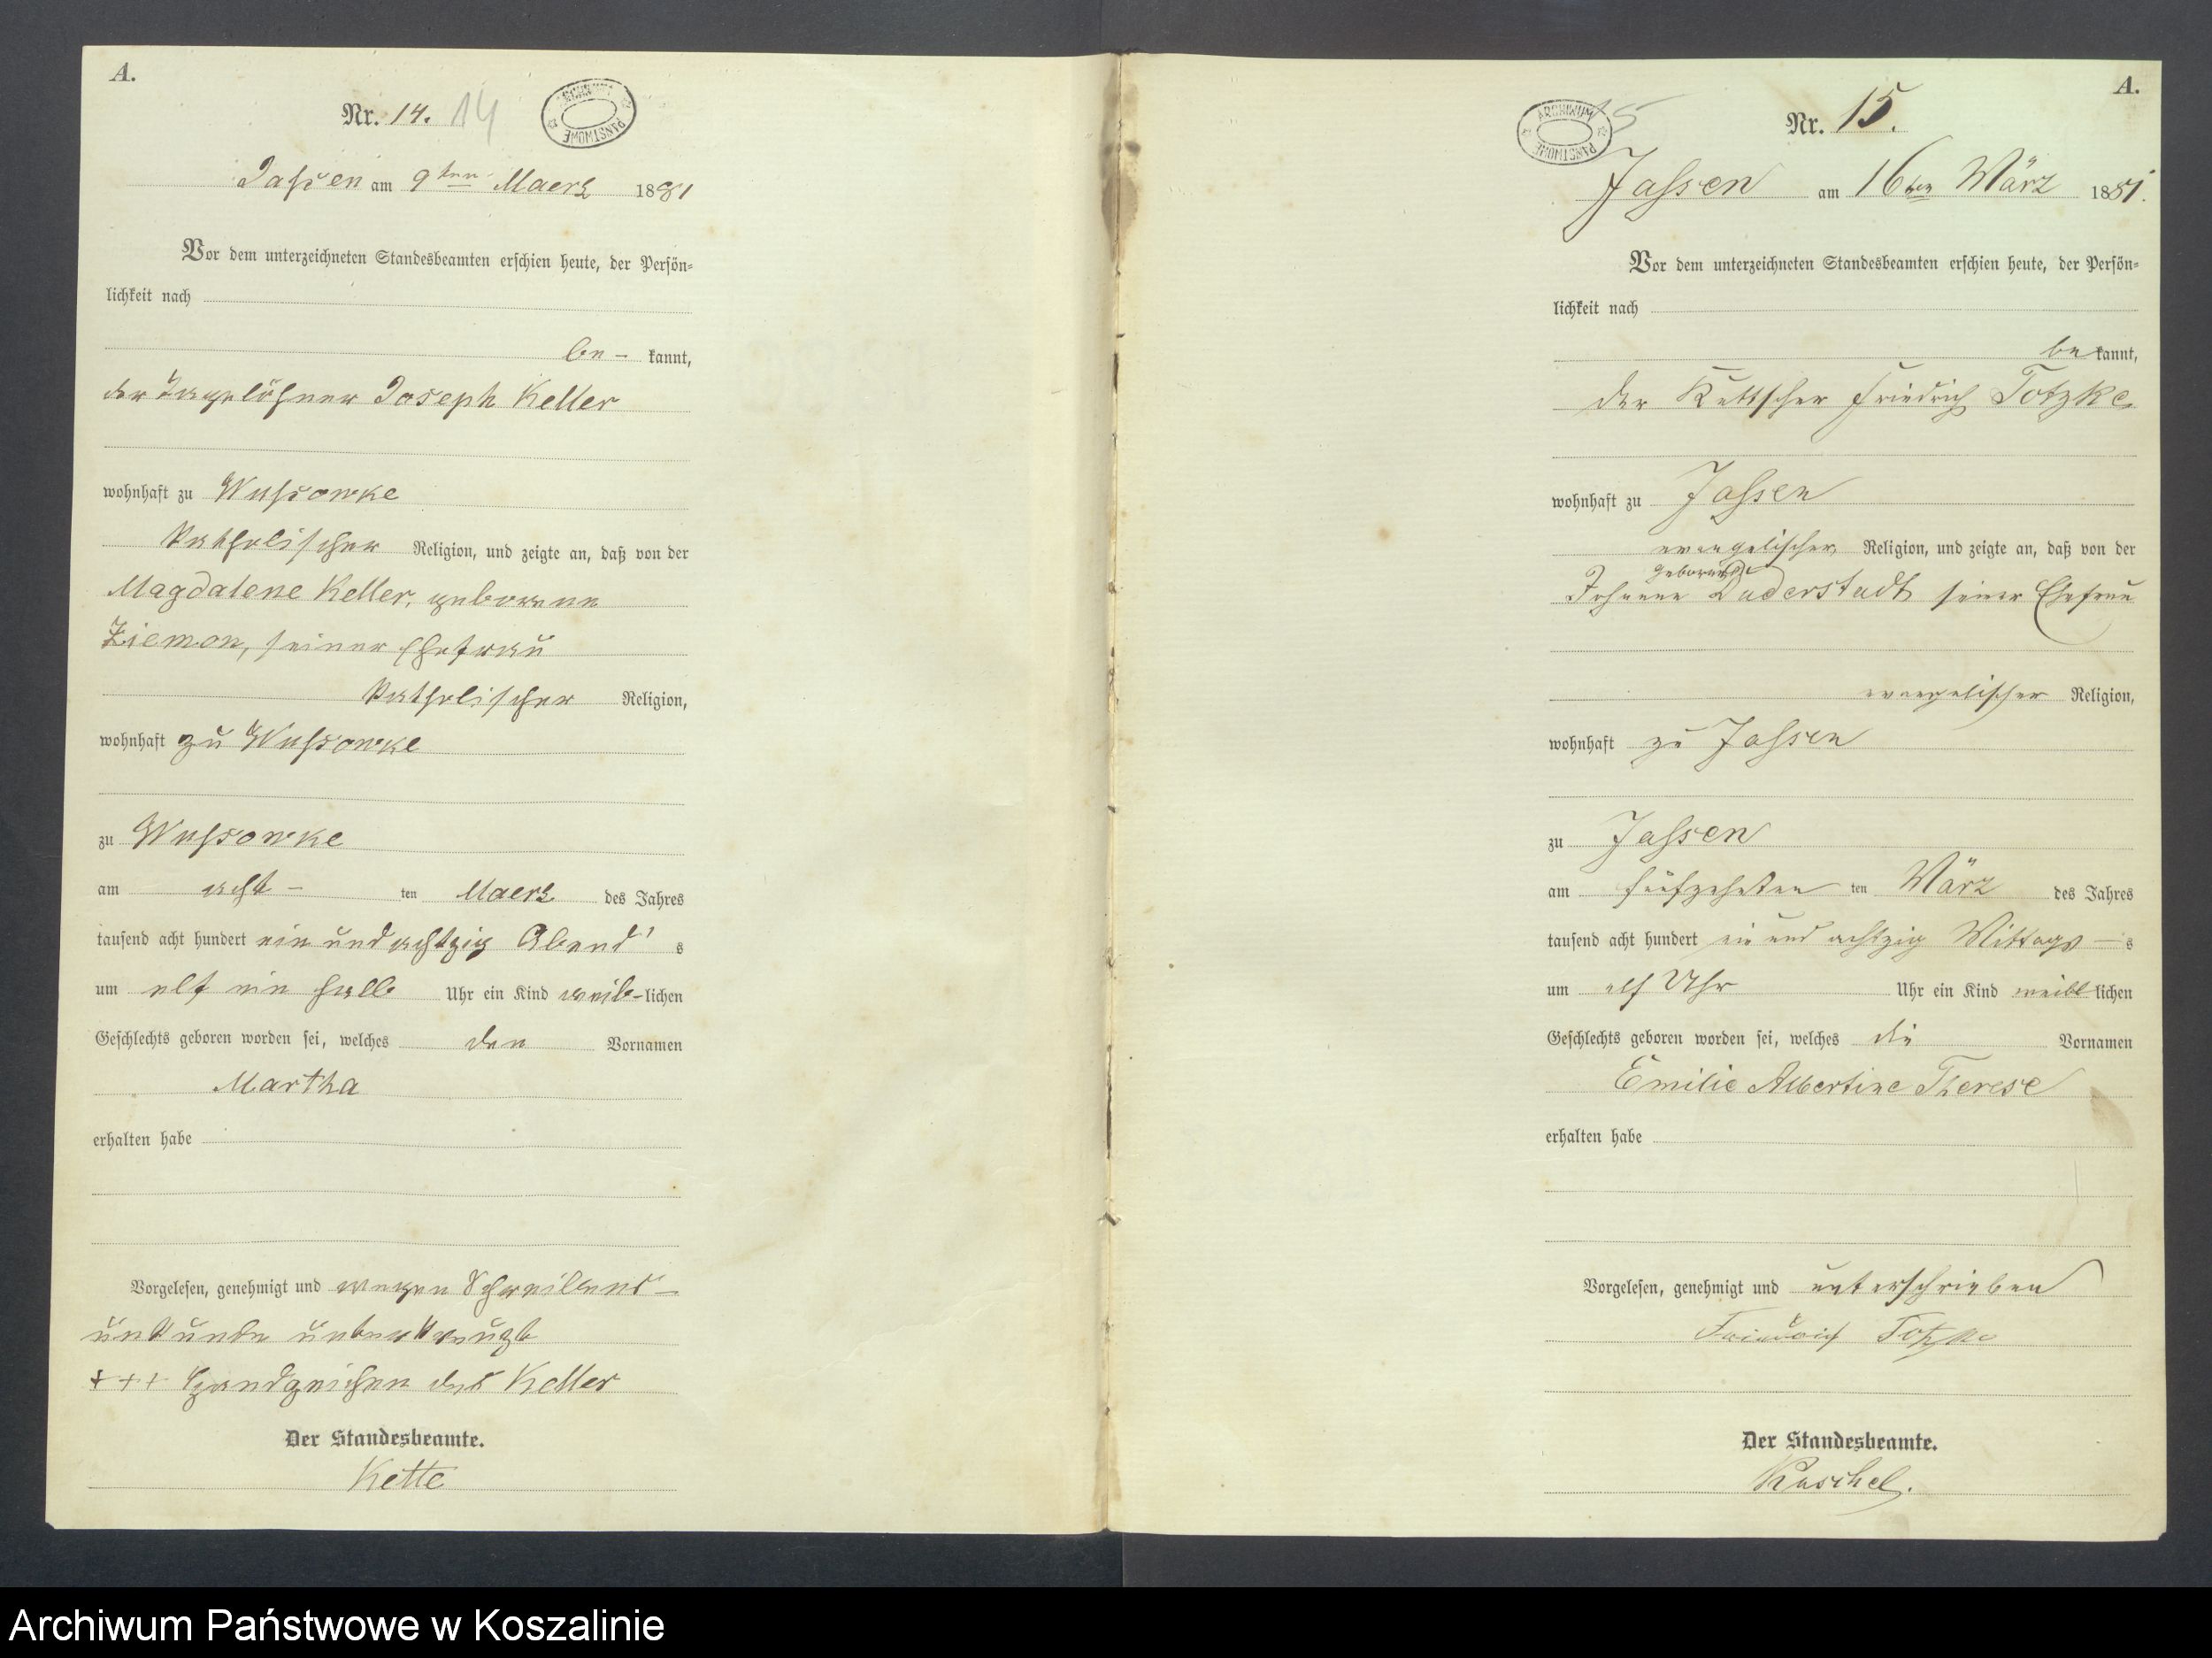 A.
Nr. 14. 14
ARCHIWUM PAŃSTWOWE
Jassen am 9ten Maerz 1881
Vor dem unterzeichneten Standesbeamten erschien heute, der Persön-
lichkeit nach
be- kannt,
der Tagelöhner Joseph Keller
wohnhaft zu Wussowke
katholischer Religion, und zeigte an, daß von der
Magdalene Keller, geborene
Ziemon, seiner Ehefrau
katholischer Religion,
wohnhaft zu Wussowke
zu Wussowke
am acht- ten Maerz des Jahres
tausend acht hundert ein und achtzig Abend's
um elf ein halb Uhr ein Kind weib-lichen
Geschlechts geboren worden sei, welches den Vornamen
Martha
erhalten habe
Vorgelesen, genehmigt und wegen Schreibens-
unkunde unterkreuzt
+++ Handzeichen des Keller
Der Standesbeamte.
Kette
A.
Nr. 15.
15
ARCHIWUM PAŃSTWOWE
Jassen am 16ten März 1881.
Vor dem unterzeichneten Standesbeamten erschien heute, der Persön-
lichkeit nach
be kannt,
der Kuttscher Friedrich Totzke
wohnhaft zu Jassen
evangelischer Religion, und zeigte an, daß von der
geborene
Johanne Duderstadt seiner Ehefrau
evangelischer Religion,
wohnhaft zu Jassen
zu Jassen
am fünfzehnten ten März des Jahres
tausend acht hundert ein und achtzig Mittags - s
um elf Uhr Uhr ein Kind weibl lichen
Geschlechts geboren worden sei, welches die Vornamen
Emilie Albertine Therese
erhalten habe
Vorgelesen, genehmigt und unterschrieben
Friedrich Totzke
Der Standesbeamte.
Kuschel.
Archiwum Państwowe w Koszalinie